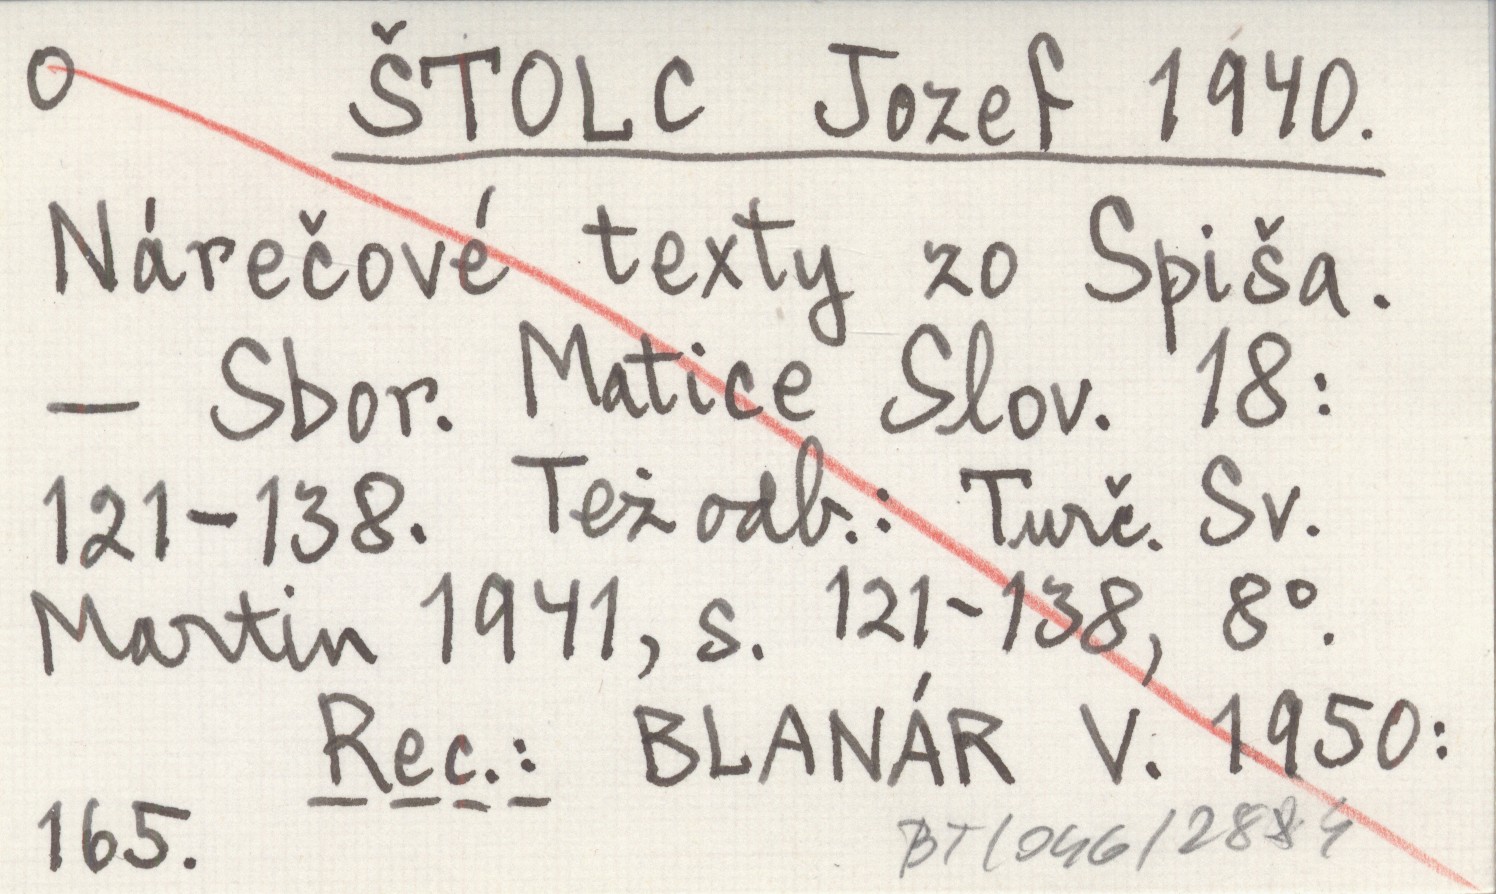 O ŠTOLC Jozef 1940.
Nárečové texty zo Spiša.
— Sbor. Matice Slov. 18:
121-138. Też odb.: Turč. Sv.
Martin 1941, s. 121-138, 8°.
Rec.: BLANÁR V. 1950:
165.
BT/046/2884